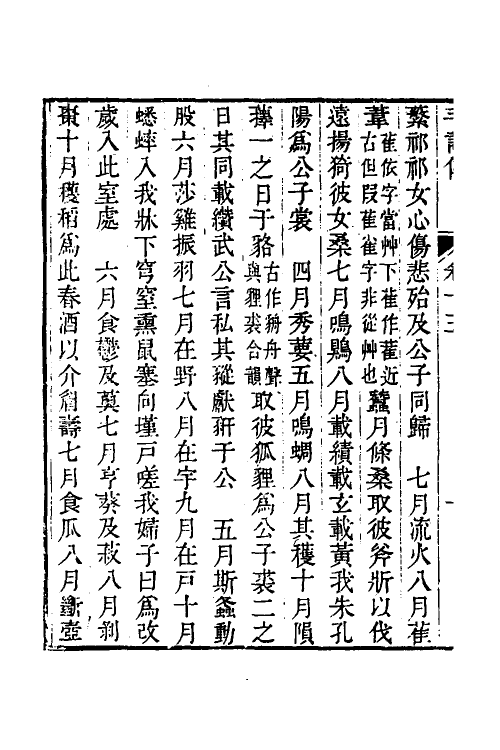 蘩祁祁女心傷悲殆及公子同歸　七月流火八月萑
葦萑依字當艸下萑作雚近古但叚萑雀字非從艸也蠶月條桑取彼斧斨以伐
遠揚猗彼女桑七月鳴鵙八月載績載玄載黃我朱孔
陽爲公子裳　四月秀葽五月鳴蜩八月其穫十月隕
蘀一之日于貉古作貈舟聲與貍裘合韻取彼狐貍爲公子裘二之
日其同載纘武公言私其豵獻豣于公　五月斯螽動
股六月莎雞振羽七月在野八月在宇九月在戶十月
蟋蟀入我牀下穹窒熏鼠塞向墐戶嗟我婦子曰爲改
歲入此室處　六月食鬱及薁七月亨葵及菽八月剝
棗十月穫稻爲此春酒以介眉壽七月食瓜八月斷壺